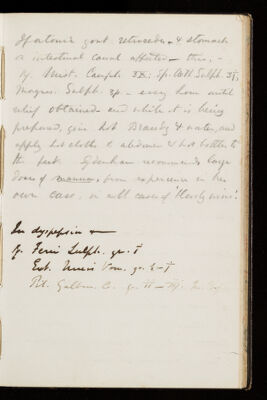 If atonic gout retrocedes & stomach
or intestinal canal affected — thus; —
Mist. Camph. Sp. Aeth. Sulph.
Magnes. Sulph. — every hour until
relief obtained and while it is being
prepared, give hot Brandy & water, and
apply hot cloths to abdomen & hot bottle to
the feet. Sydenham recommends large
doses of from experience in his
own case, in all cases of
In dyspepsia —
Ferri Sulph. gr. i
Ext. Nucis Vom. gr.
Pil. Galban. C. gr.